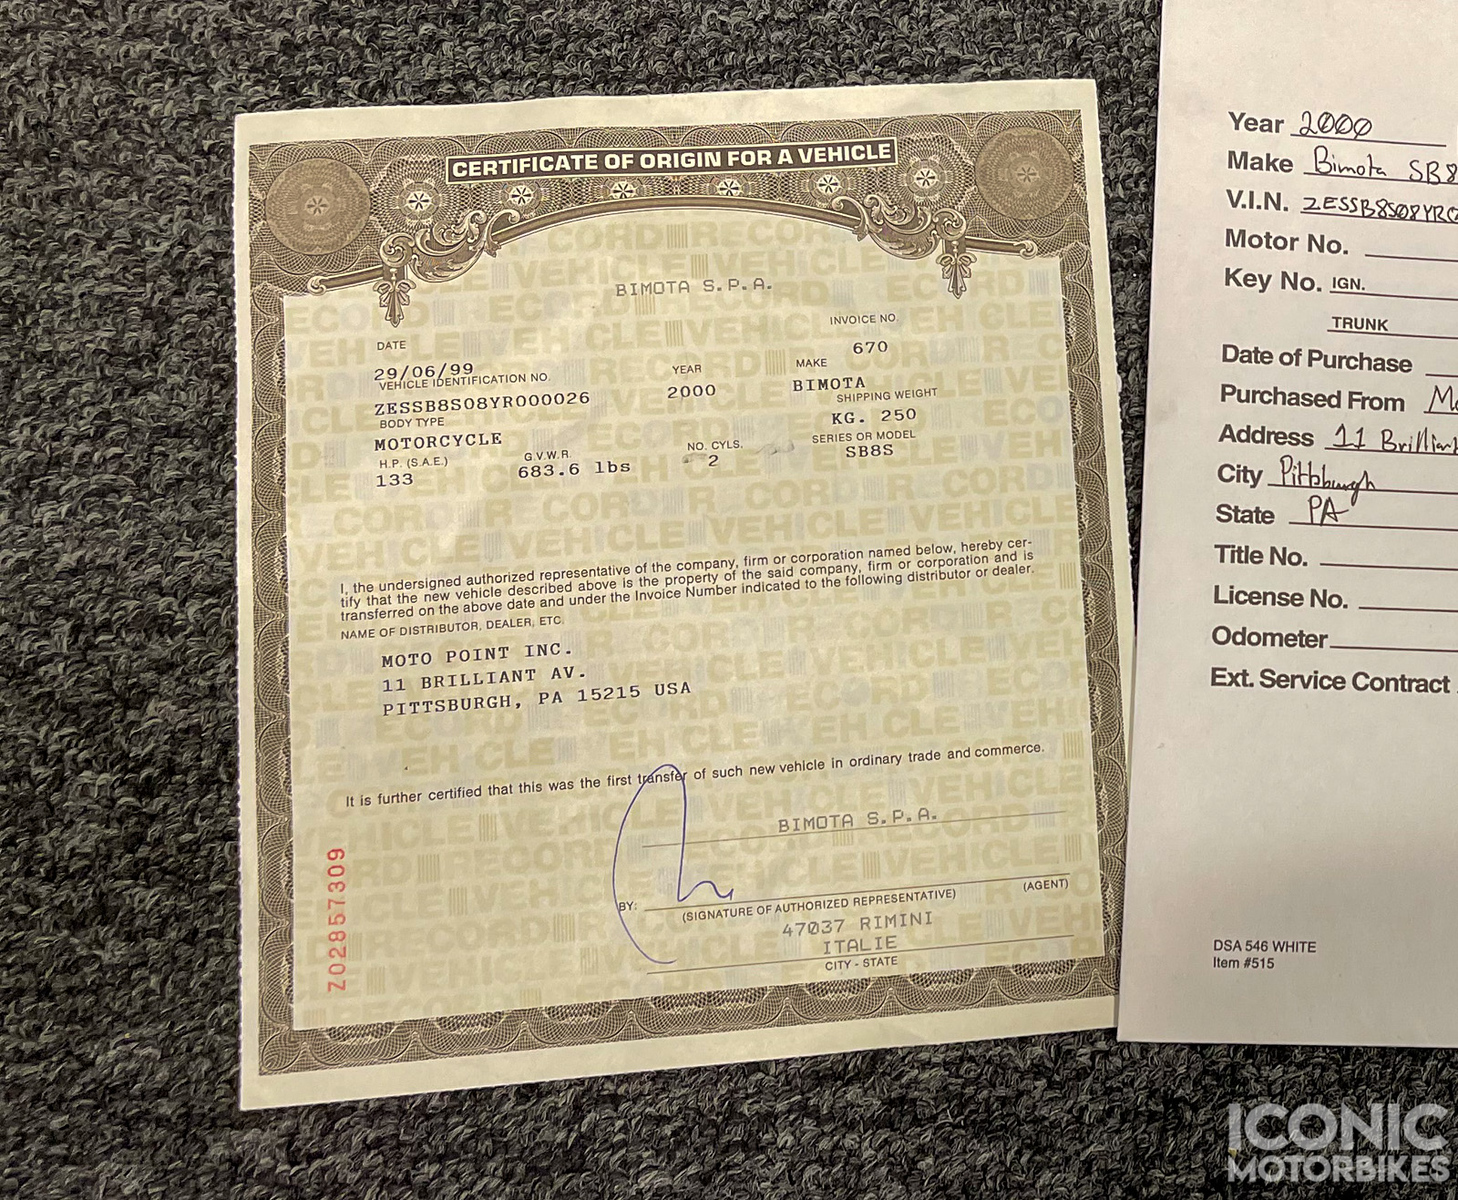 CERTIFICATE OF ORIGIN FOR A VEHICLE
BIMOTA S.P.A.
INVOICE NO.
670
DATE
29/06/99
VEHICLE IDENTIFICATION NO.
ZESSB8S08YR000026
YEAR
2000
MAKE
BIMOTA
BODY TYPE
MOTORCYCLE
SHIPPING WEIGHT
KG. 250
H.P. (S.A.E.)
133
G.V.W.R.
683.6 lbs
NO. CYLS.
2
SERIES OR MODEL
SB8S
I, the undersigned authorized representative of the company, firm or corporation named below, hereby cer-
tify that the new vehicle described above is the property of the said company, firm or corporation and is
transferred on the above date and under the Invoice Number indicated to the following distributor or dealer.
NAME OF DISTRIBUTOR, DEALER, ETC.
MOTO POINT INC.
11 BRILLIANT AV.
PITTSBURGH, PA 15215 USA
It is further certified that this was the first transfer of such new vehicle in ordinary trade and commerce.
BIMOTA S.P.A.
BY:
(SIGNATURE OF AUTHORIZED REPRESENTATIVE) (AGENT)
47037 RIMINI
ITALIE
CITY - STATE
Z02857309
Year 2000
Make Bimota SB8
V.I.N. ZESSB8S08YR0
Motor No.
Key No. IGN.
TRUNK
Date of Purchase
Purchased From
Address 11 Brilliant
City Pittburgh
State PA
Title No.
License No.
Odometer
Ext. Service Contract
DSA 546 WHITE
Item #515
ICONIC
MOTORBIKES